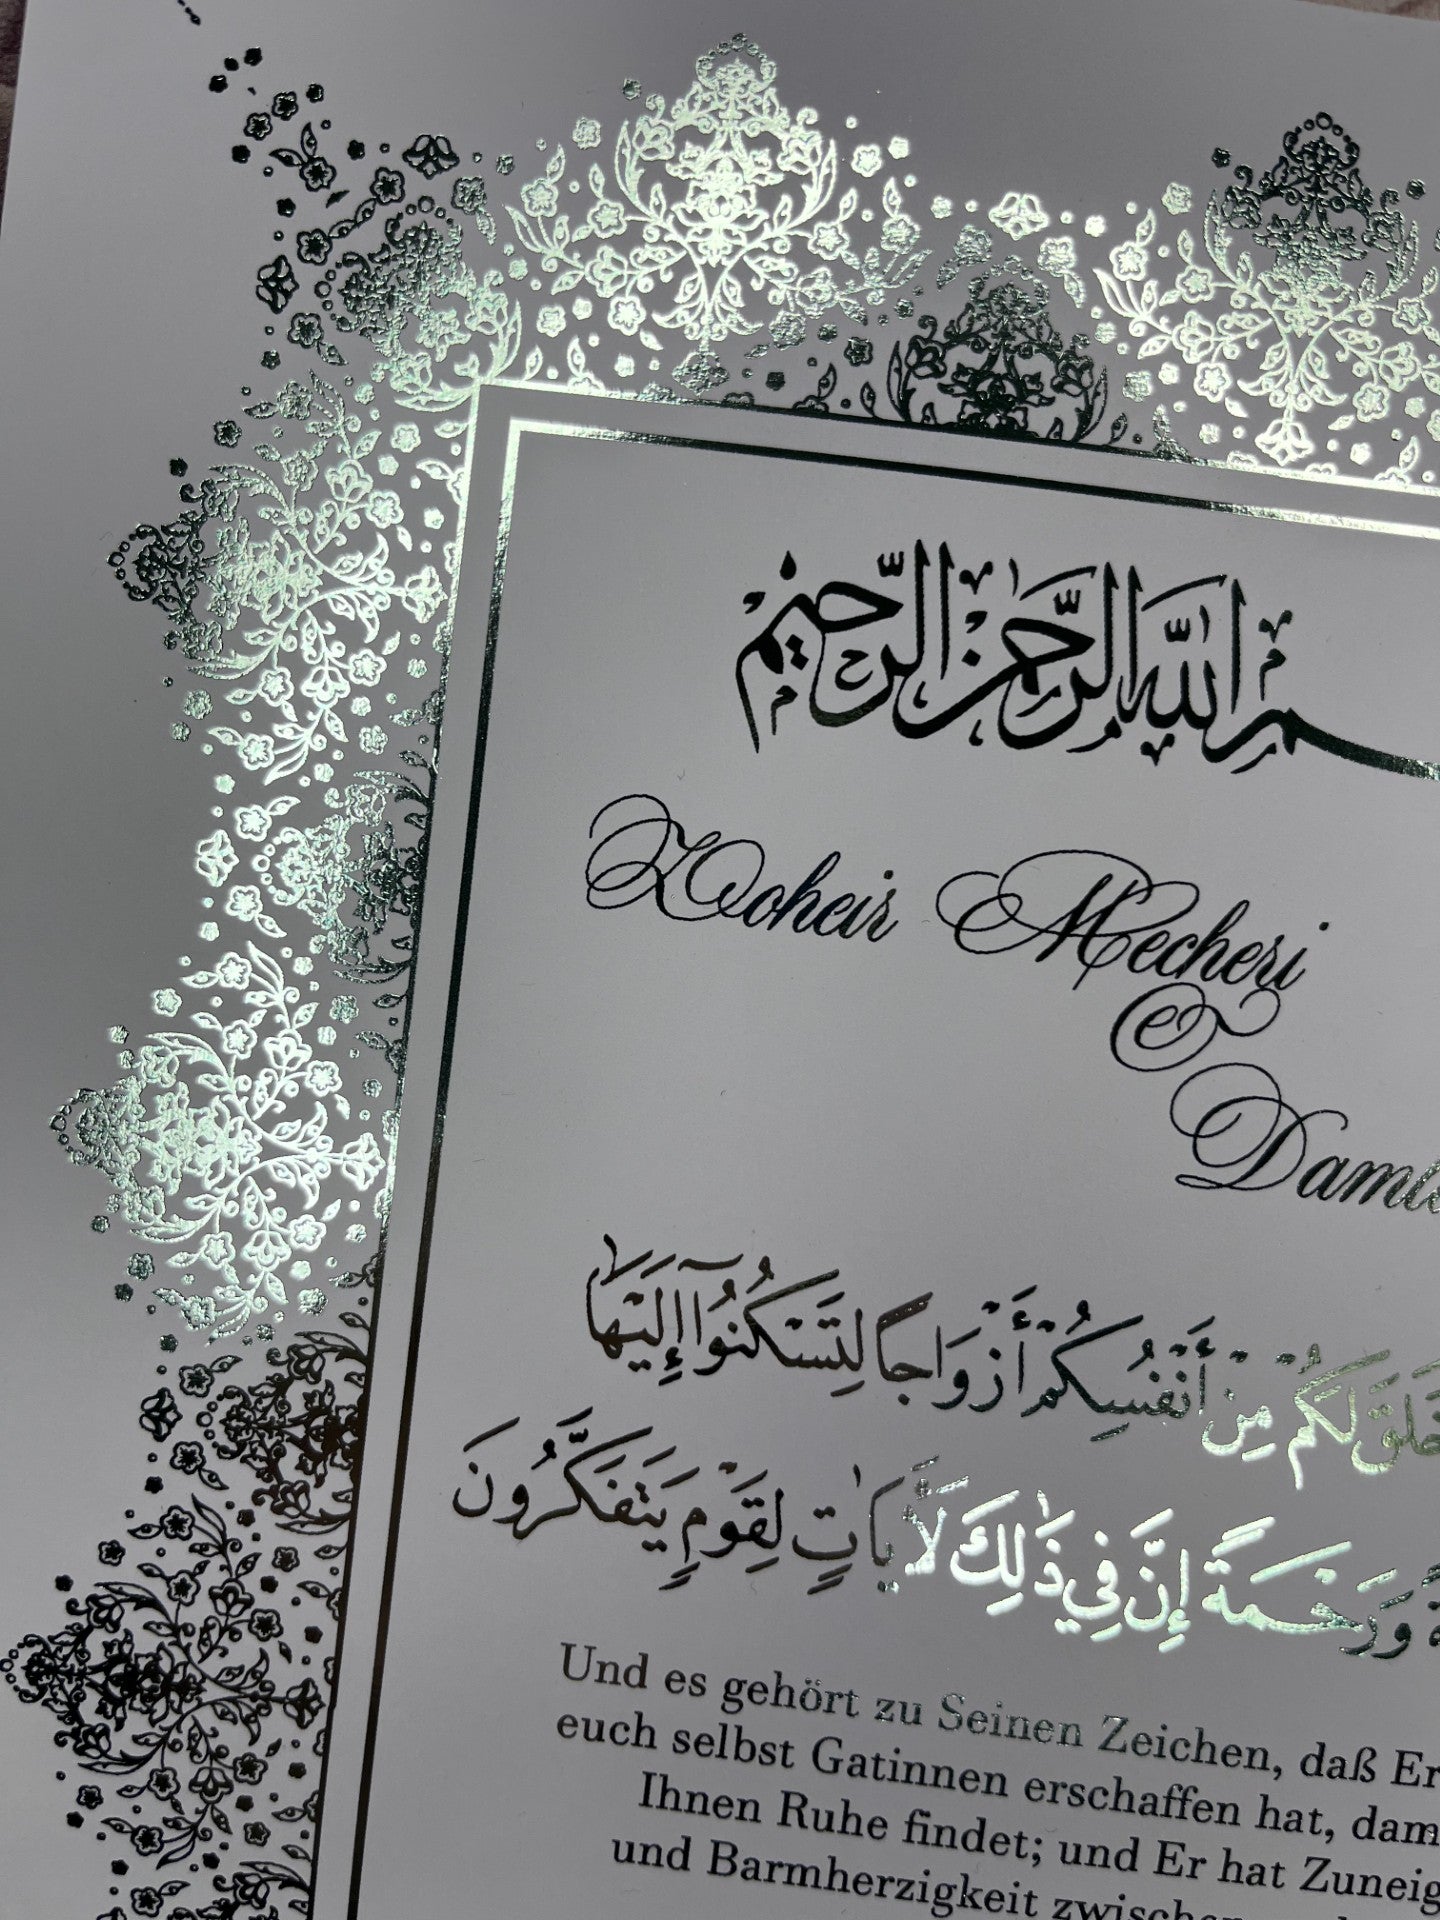 بسم الله الرحمن الرحيم
Zoheir Mecheri
&
خَلَقَ لَكُمْ مِنْ أَنْفُسِكُمْ أَزْوَاجًا لِتَسْكُنُوا إِلَيْهَا
وَرَحْمَةً إِنَّ فِي ذَٰلِكَ لَآيَاتٍ لِقَوْمٍ يَتَفَكَّرُونَ
Und es gehört zu Seinen Zeichen, daß Er
euch selbst Gatinnen erschaffen hat,
Ihnen Ruhe findet; und Er hat
und Barmherzigkeit